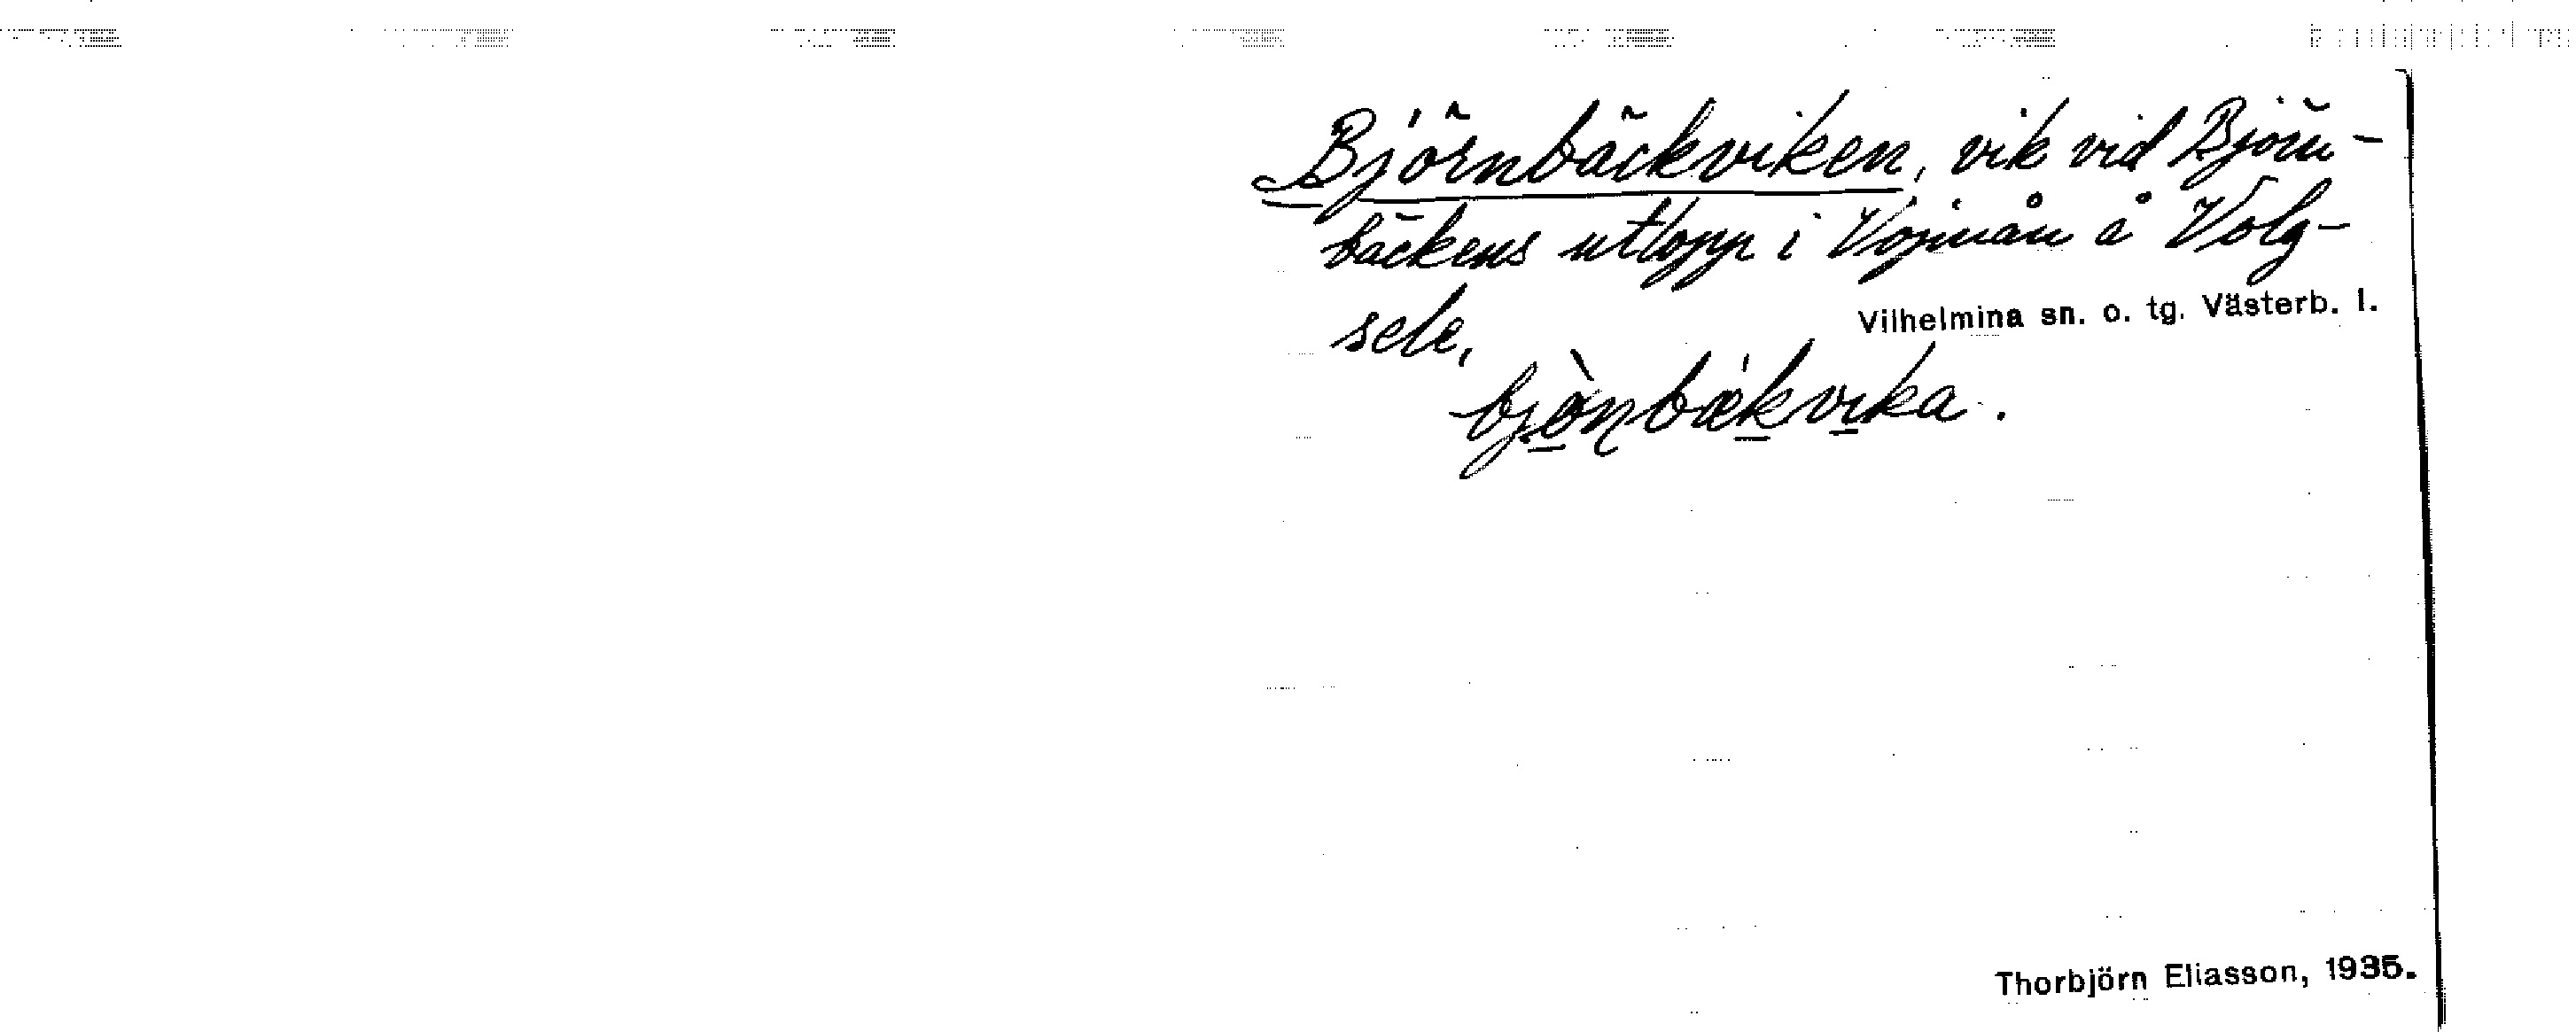 Björnbäckviken, vik vid Björn-
bäckens utlopp i Vojmån å Volg-
sele,
Vilhelmina sn. o. tg. Västerb. l.
bjò̱nbæ̀ḵvi̱ka.
Thorbjörn Eliasson, 1935.